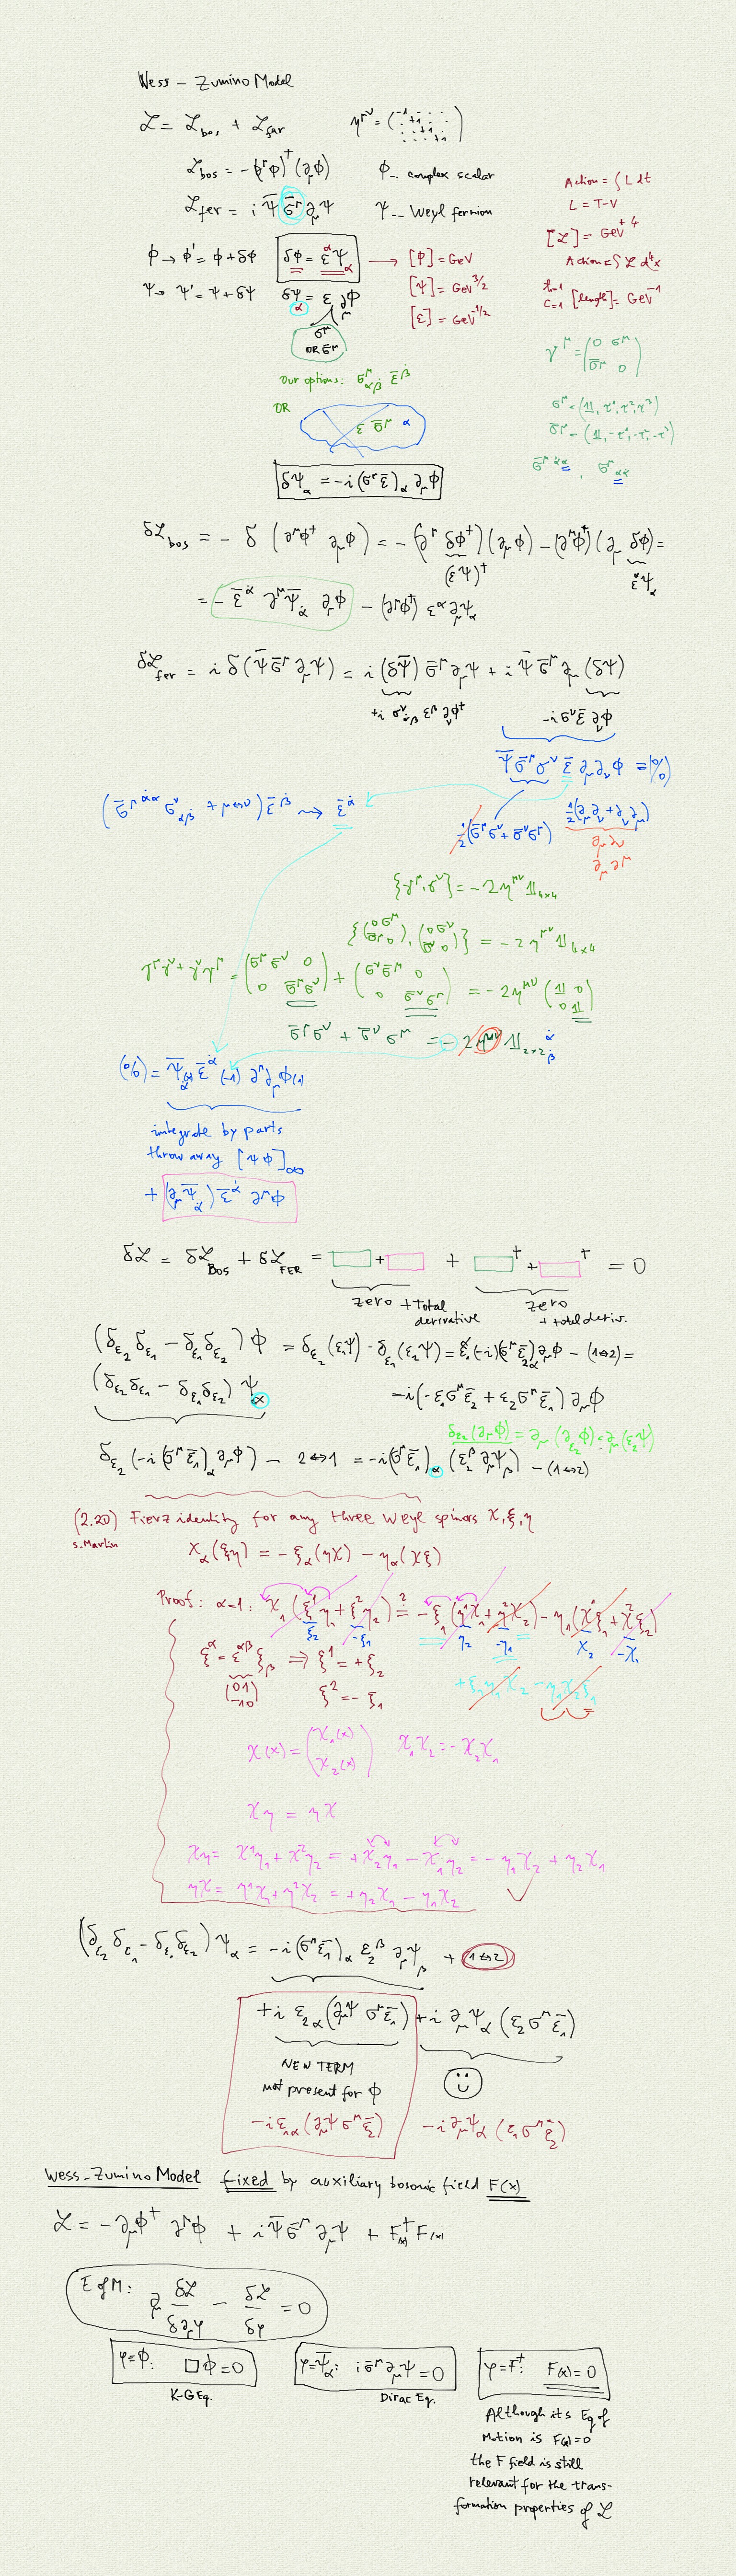 Wess – Zumino Model
ℒ = ℒ_bos + ℒ_fer    η^μν = (-1 +1 +1 +1)
ℒ_bos = -(∂^μ ϕ)^† (∂_μ ϕ)    ϕ -- complex scalar
ℒ_fer = i ψ̄ σ̄^μ ∂_μ ψ    ψ -- Weyl fermion
Action = ∫ L dt
L = T-V
[ℒ] = GeV^+4
Action = ∫ ℒ d⁴x
ħ=1
c=1 [length] = GeV^-1
ϕ → ϕ' = ϕ + δϕ    δϕ = ε^α ψ_α → [ϕ] = GeV
ψ → ψ' = ψ + δψ    δψ_α = ε ∂_μ ϕ    [ψ] = GeV^3/2
[ε] = GeV^-1/2
σ^μ
OR σ̄^μ
γ^μ = (0 σ^μ
σ̄^μ 0)
Our options: σ^μ_αβ̇ ε̄^β̇
OR
ε σ̄^μ α̇
σ^μ = (𝟙, τ¹, τ², τ³)
σ̄^μ = (𝟙, -τ¹, -τ², -τ³)
σ̄^μ α̇α , σ^μ_αα̇
δψ_α = -i (σ^μ ε̄)_α ∂_μ ϕ
δℒ_bos = - δ (∂^μ ϕ^† ∂_μ ϕ) = - (∂^μ δϕ^†) (∂_μ ϕ) - (∂^μ ϕ^†) (∂_μ δϕ) =
(εψ)^†    ε^α ψ_α
= - ε̄^α̇ ∂^μ ψ̄_α̇ ∂_μ ϕ - (∂^μ ϕ^†) ε^α ∂_μ ψ_α
δℒ_fer = i δ (ψ̄ σ̄^μ ∂_μ ψ) = i (δψ̄) σ̄^μ ∂_μ ψ + i ψ̄ σ̄^μ ∂_μ (δψ)
+i σ^ν_α̇β ε^β ∂_ν ϕ^†    -i σ^ν ε̄ ∂_ν ϕ
ψ̄ σ̄^μ σ^ν ε̄ ∂_μ ∂_ν ϕ = (%)
(σ̄^μ α̇α σ^ν_αβ̇ + μ↔ν) ε̄^β̇ → ε̄^α̇
½(σ̄^μ σ^ν + σ̄^ν σ^μ)    ½(∂_μ ∂_ν + ∂_ν ∂_μ)
∂_μ ∂_ν
∂_μ ∂^μ
{γ^μ, γ^ν} = -2η^μν 𝟙_4×4
{(0 σ^μ
σ̄^μ 0), (0 σ^ν
σ̄^ν 0)} = -2η^μν 𝟙_4×4
γ^μ γ^ν + γ^ν γ^μ = (σ^μ σ̄^ν 0
0 σ̄^μ σ^ν) + (σ^ν σ̄^μ 0
0 σ̄^ν σ^μ) = -2η^μν (𝟙 0
0 𝟙)
σ̄^μ σ^ν + σ̄^ν σ^μ = - 2 η^μν 𝟙_2×2 α̇ β̇
(%) = ψ̄(x)_α̇ ε̄^α̇ (-1) ∂^μ ∂_μ ϕ(x)
integrate by parts
throw away [ψϕ]_∞
+ (∂_μ ψ̄_α̇) ε̄^α̇ ∂^μ ϕ
δℒ = δℒ_BOS + δℒ_FER = □ + □ + □^† + □^† = 0
zero + total
derivative
zero
+ total deriv.
(δ_ε₂ δ_ε₁ - δ_ε₁ δ_ε₂) ϕ = δ_ε₂ (ε₁ψ) - δ_ε₁ (ε₂ψ) = ε₁^α (-i)(σ^μ ε̄₂)_α ∂_μ ϕ - (1↔2) =
(δ_ε₂ δ_ε₁ - δ_ε₁ δ_ε₂) ψ_α
-i(-ε₁ σ^μ ε̄₂ + ε₂ σ^μ ε̄₁) ∂_μ ϕ
δ_ε₂ (∂_μ ϕ) = ∂_μ (δ_ε₂ ϕ) = ∂_μ (ε₂ψ)
δ_ε₂ (-i (σ^μ ε̄₁)_α ∂_μ ϕ) - 2↔1 = -i (σ^μ ε̄₁)_α (ε₂^β ∂_μ ψ_β) - (1↔2)
(2.20) Fierz identity for any three Weyl spinors χ, ξ, η
S. Martin
χ_α (ξη) = -ξ_α (ηχ) - η_α (χξ)
Proof: α=1: χ₁ (ξ¹η₁ + ξ²η₂) ≟ -ξ₁ (η¹χ₁ + η²χ₂) - η₁ (χ¹ξ₁ + χ²ξ₂)
ξ₂    -ξ₁    η₂    -η₁    χ₂    -χ₁
ξ^α = ε^αβ ξ_β ⇒ ξ¹ = +ξ₂
+ξ₁η₁χ₂ - η₁χ₂ξ₁
(0 1
-1 0)
ξ² = -ξ₁
χ(x) = (χ₁(x)
χ₂(x))    χ₁χ₂ = -χ₂χ₁
χη = ηχ
χη = χ¹η₁ + χ²η₂ = +χ₂η₁ - χ₁η₂ = -η₁χ₂ + η₂χ₁
ηχ = η¹χ₁ + η²χ₂ = +η₂χ₁ - η₁χ₂
(δ_ε₂ δ_ε₁ - δ_ε₁ δ_ε₂) ψ_α = -i (σ^μ ε̄₁)_α ε₂^β ∂_μ ψ_β + (1↔2)
+i ε₂α (∂_μ ψ σ^μ ε̄₁) + i ∂_μ ψ_α (ε₂ σ^μ ε̄₁)
NEW TERM
not present for ϕ
-i ε₁α (∂_μ ψ σ^μ ε̄₂)    -i ∂_μ ψ_α (ε₁ σ^μ ε̄₂)
Wess-Zumino Model fixed by auxiliary bosonic field F(x)
ℒ = -∂_μ ϕ^† ∂^μ ϕ + i ψ̄ σ̄^μ ∂_μ ψ + F^†(x) F(x)
E of M: ∂_μ δℒ/δ∂_μφ - δℒ/δφ = 0
φ=ϕ: □ϕ = 0
K-G Eq.
φ=ψ̄_α̇: i σ̄^μ ∂_μ ψ = 0
Dirac Eq.
φ=F^†: F(x) = 0
Although its Eq of
Motion is F(x)=0
the F field is still
relevant for the trans-
formation properties of ℒ